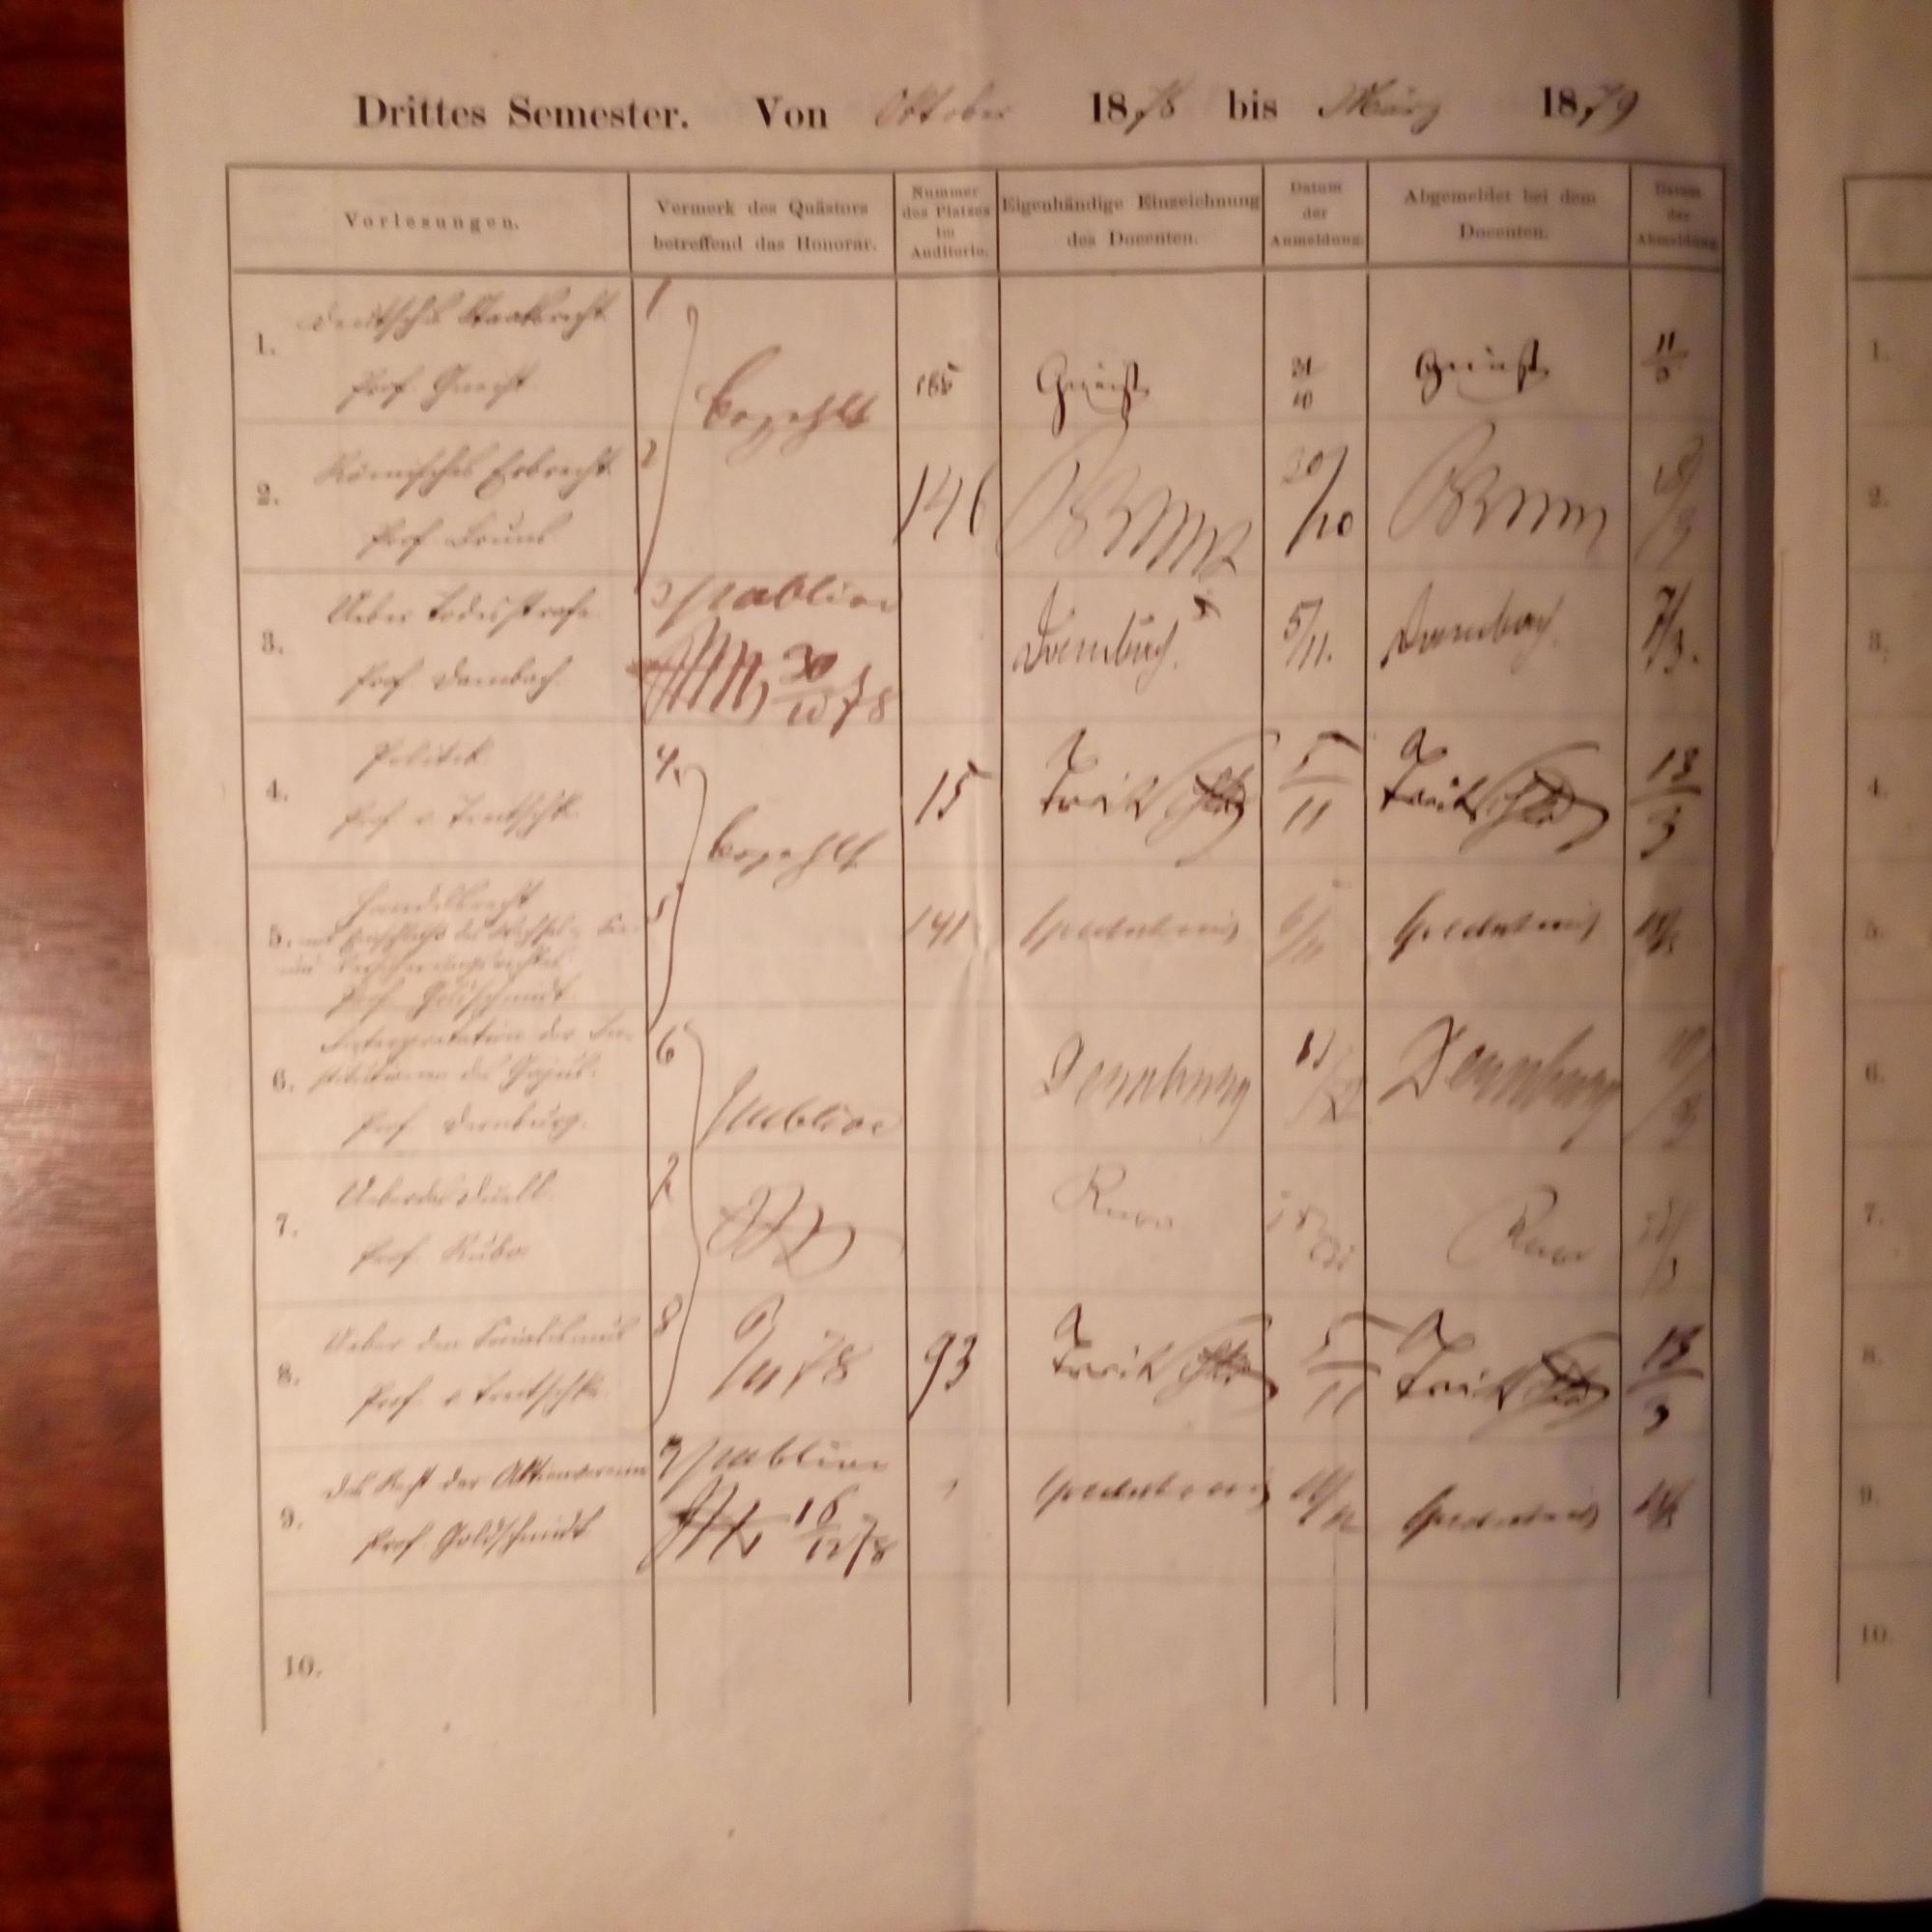 Drittes Semester. Von Oktober 1878 bis März 1879
Vorlesungen.
Vermerk des Quästors
betreffend das Honorar.
Nummer
des Platzes
im
Auditorio.
Eigenhändige Einzeichnung
des Docenten.
Datum
der
Anmeldung.
Abgemeldet bei dem
Docenten.
Datum
der
Abmeldung.
1.
Deutsches Staatsrecht
Prof. Gneist
1
bezahlt
165
Gneist
21/10
Gneist
2.
Römisches Erbrecht
Prof. Bruns
2
146
Bruns
30/10
Bruns
3.
Ueber Todesstrafe
Prof. Dambach
3 publice
30/10 78
Dambach
5/11.
Dambach.
7/3.
4.
Politik
Prof. v. Treitschke
4.
bezahlt
15
Treitschke
5/11
Treitschke
13/3
5.
Handelsrecht
mit Einschluss des Wechsel-, See-
und Versicherungsrechtes
Prof. Goldschmidt
5
141
Goldschmidt
Goldschmidt
6.
Interpretation der In-
stitutionen des Gajus.
Prof. Dernburg.
6
publice
Dernburg
Dernburg
7.
Ueber das Duell
Prof. Rubo
7
Rubo
Rubo
8.
Ueber den Socialismus
Prof. v. Treitschke
8
6/11 78
93
Treitschke
5/11
Treitschke
13/3
9.
Das Recht der Aktienvereine
Prof. Goldschmidt
9 publice
16/12 78
Goldschmidt
Goldschmidt
10.
1.
2.
3.
4.
5.
6.
7.
8.
9.
10.